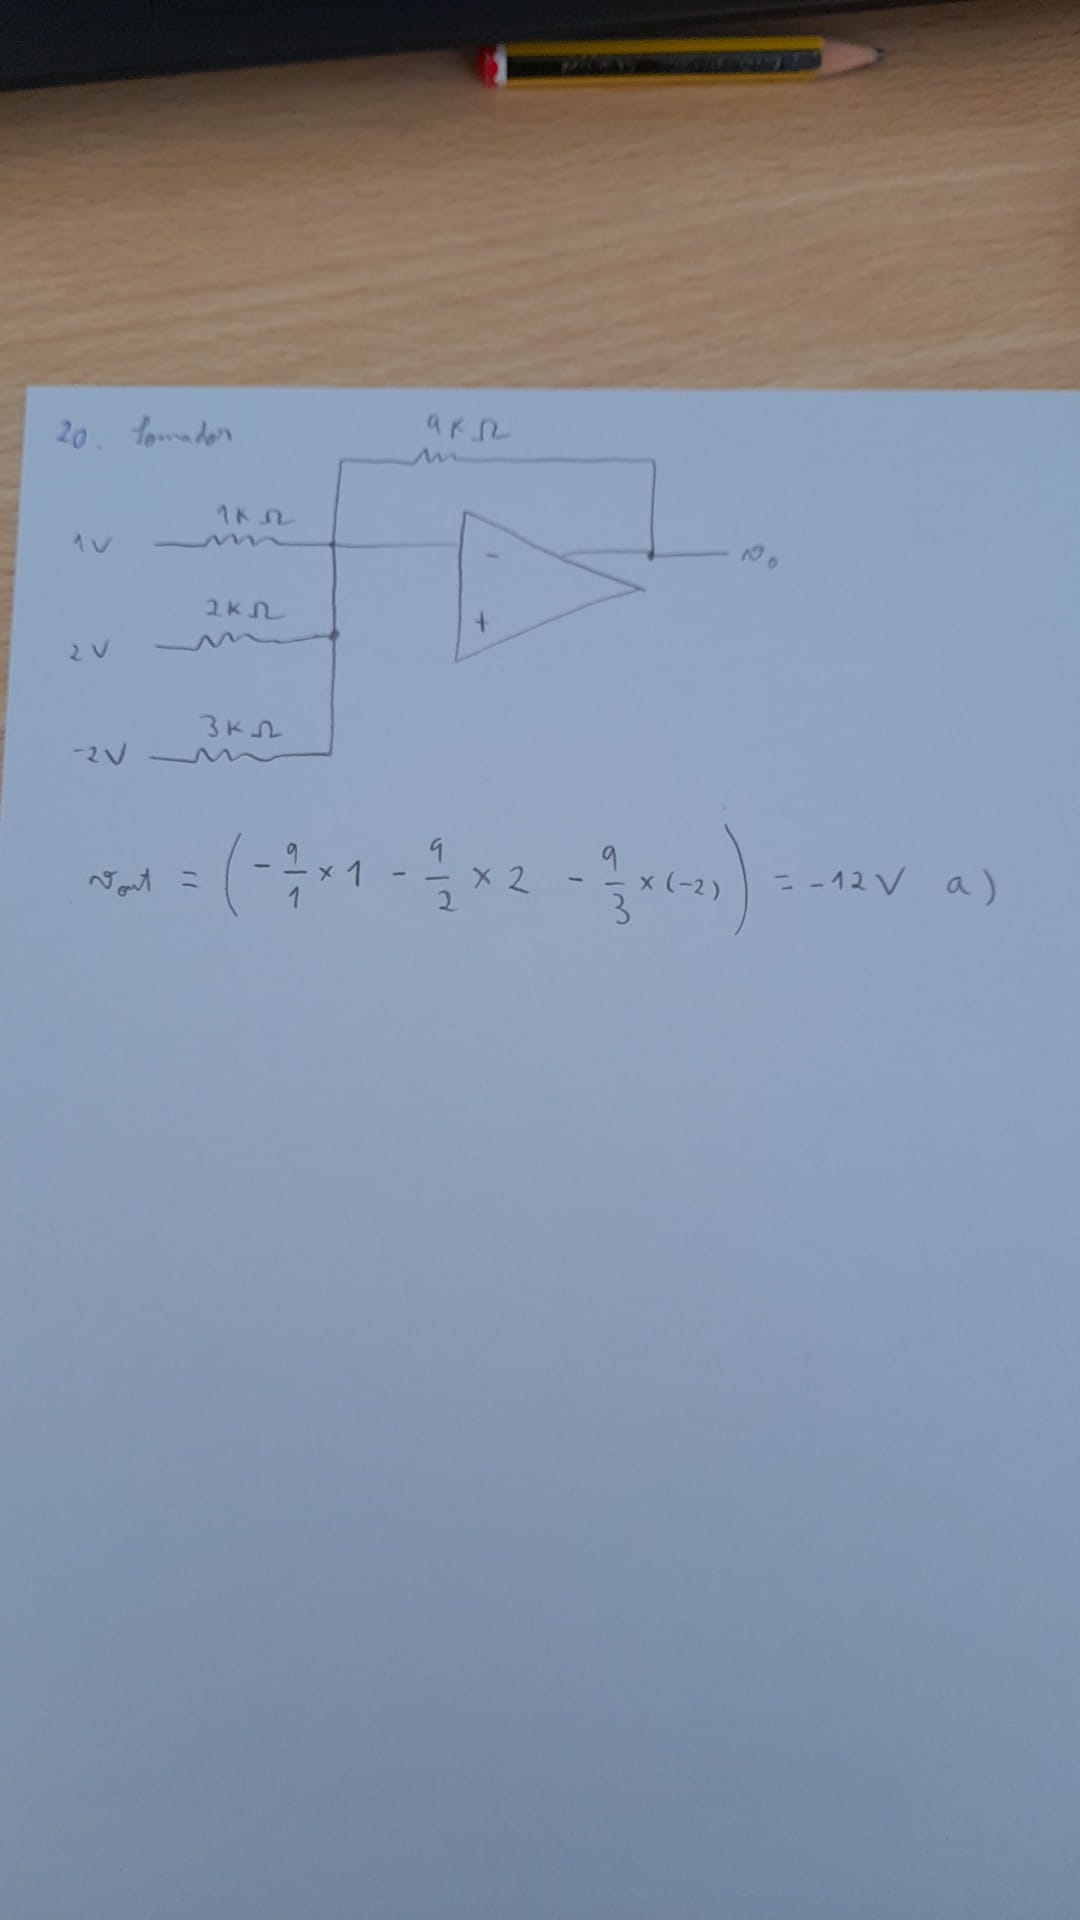 20. Somador
9KΩ
1KΩ
1V
- vo
2KΩ
+
2V
3KΩ
-2V
vout = (- 9/1 × 1 - 9/2 × 2 - 9/3 × (-2)) = -12V a)